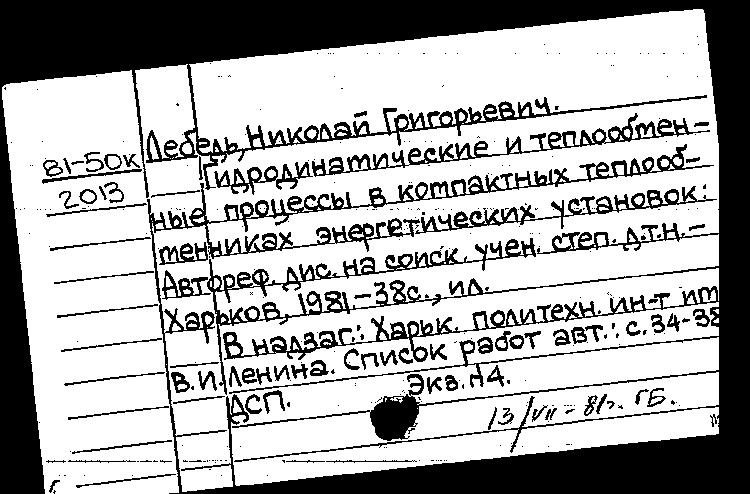 Лебедь, Николай Григорьевич.
81-50к
2013
Гидродинамические и теплообмен-
ные процессы в компактных теплооб-
менниках энергетических установок:
Автореф. дис. на соиск. учен. степ. д.т.н.-
Харьков, 1981.-38с., ил.
В надзаг.: Харьк. политехн. ин-т им
В.И. Ленина. Список работ авт.: с. 34-38
ДСП. Экз. №4.
13/VII-81г. ГБ.